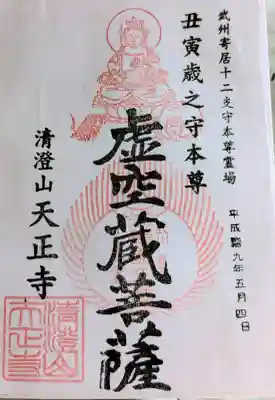 武州寄居十二支守本尊霊場
丑寅歳之守本尊
虚空蔵菩薩
清澄山天正寺
平成 九年五月四日
清澄山
天正寺